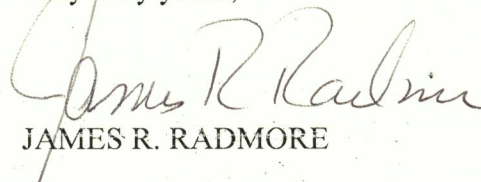 James R Radmore
JAMES R. RADMORE